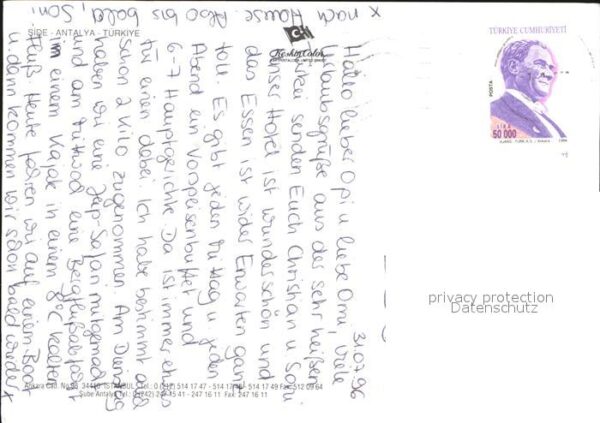 31.07.96
Hallo lieber Opi u. liebe Omi, viele
Urlaubsgrüße aus der sehr heißen
Türkei senden Euch Christian u. Soni
Unser Hotel ist wunderschön und
das Essen ist wider Erwarten ganz
toll. Es gibt jeden Mittag u. jeden
Abend ein Vorspeisenbuffet und
6-7 Hauptgerichte Da ist immer etwas
für einen dabei. Ich habe bestimmt
schon 2 Kilo zugenommen Am Dienstag
haben wir eine Jeep-Safari mitgemacht
und am Mittwoch eine Bergflußabfahrt
im einem Kajak in einem 8°C kalten
Fluß Heute fahren wir auf einem Boot
u. dann kommen wir schon bald wieder x
x nach Hause. Also bis
bald, Soni
SIDE - ANTALYA - TÜRKİYE
Keskin Color
TÜRKİYE CUMHURİYETİ
POSTA
LİRA
50 000
privacy protection
Datenschutz
Ankara Cad. No: 34410 İSTANBUL Tel.: 0 (212) 514 17 47 - 514 17 48 - 514 17 49 Fax: 512 09 64
Şube Antalya Tel.: 0 (242) 247 15 41 - 247 16 11 Fax: 247 16 11